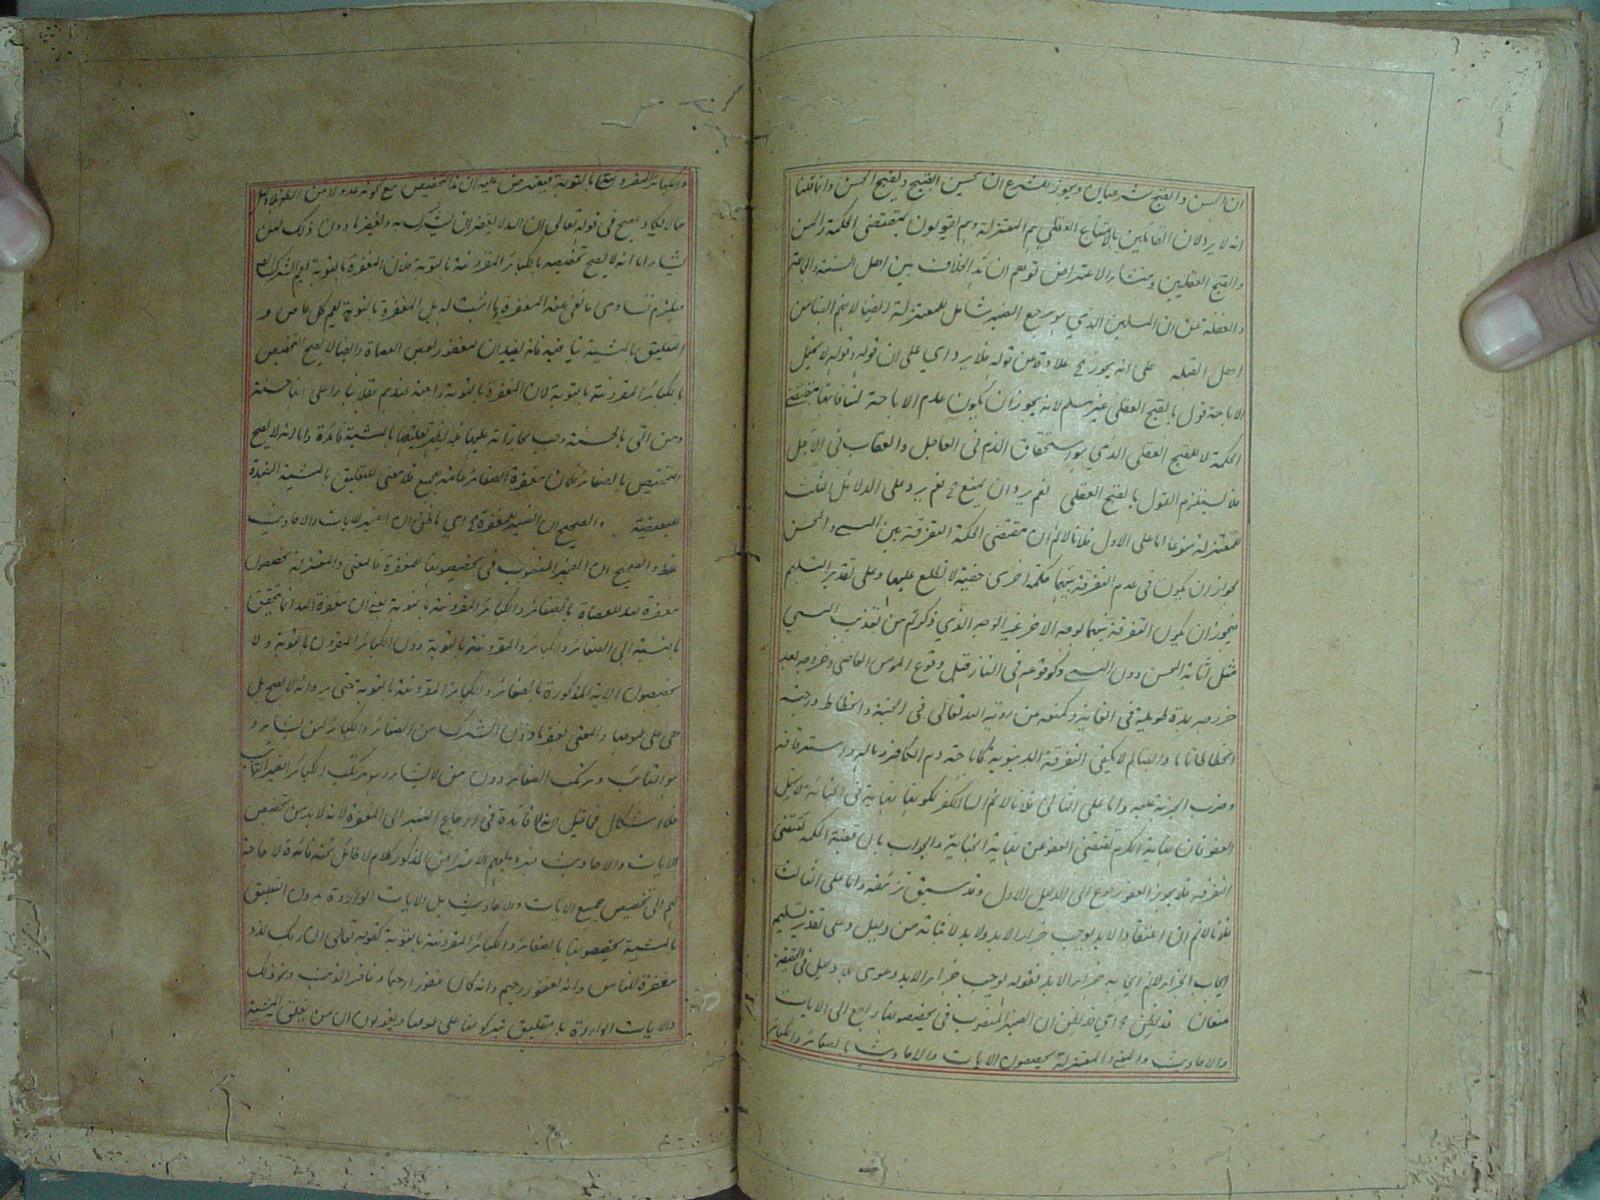 ان الحسن والقبح شرعيان ويجوز للشرع ان يحسن القبيح ويقبح الحسن وانما قلنا
انه لا يرد لان القائلين بالامتناع العقلي هم المعتزلة وهم يقولون بمقتضى الحكمة والحسن
والقبح العقليين ومنشاء الاعتراض توهم ان هذا الخلاف بين اهل السنة والجماعة
والغفلة عن ان المسلمين الذي هو مرجع الضمير شامل للمعتزلة ايضا لانهم ايضا من
اهل القبلة على انه يجوز علاوة من قوله فلا يرد اي على ان قوله وقوله لا يحتمل
الاباحة قول بالقبح العقلي غير مسلم لانه يجوز ان يكون عدم الاباحة لمنافاتها بمقتضى
الحكمة لا للقبح العقلي الذي هو استحقاق الذم في العاجل والعقاب في الآجل
فلا يستلزم القول بالقبح العقلي نعم يرد ان يمنع نعم يرد على الدلائل الثلث
للمعتزلة منوعا اما على الاول فلانا لا نم ان مقتضى الحكمة التفرقة بين المسيء والمحسن
لجواز ان يكون في عدم التفرقة بينهما حكمة اخرى خفية لا نطلع عليها وعلى تقدير التسليم
فيجوز ان يكون التفرقة بينهما بوجه الاخر غير الوجه الذي ذكرتم من تعذيب المسيء
مثل اثابة المحسن دون المسيء وكوقوعه في النار قبل وقوع المؤمن العاصي وخروجه بعد
خروجه بمدة طويلة في الغاية وكمنعه من روية الله تعالى في الجنة وانحطاط درجته
انحطاطا تاما وايضا لم لا يكفي التفرقة الدنيوية كاباحة دم الكافر وماله واسترقاقه
وضرب الجزية عليه واما على الثاني فلانا لا نم ان الكفر لكونه نهاية في الجناية لا يحتمل
العفو فان نهاية الكرم تقتضى العفو عن نهاية الجناية والجواب بان قضية الحكمة تقتضى
التفرقة فلا يجوز العفو رجوع الى الدليل الاول وقد سبق تزئيفه واما على الثالث
فلانا لا نم ان اعتقاد الابد يوجب جزاء الابد ولا بد لاثباته من دليل وعلى تقدير تسليم
ايجاب الجزاء لانم ايجابه جزاء الابد فقوله يوجب جزاء الابد دعوى بلا دليل
قد يظن اي قد يظن ان الضمير المنصوب في يخصصونها راجع الى الايات
والاحاديث والمعنى والمعتزلة يخصصون الايات والاحاديث بالصغائر والكبائر
والكبائر المقرونة بالتوبة فيعترض عليه ان هذا التخصيص مع كونه عدولا من الظاهر
مما لا يكاد يصح في قوله تعالى ان الله لا يغفر ان يشرك به ويغفر ما دون ذلك لمن
يشاء اما انه لا يصح تخصيصه بالكبائر المقرونة بالتوبة فلان المغفرة بالتوبة يعم الشرك
فيلزم تساوى ما نفى عنه المغفرة بما اثبت له بل المغفرة بالتوبة يعم كل عاص و
التعليق بالمشية ينافيه فانه يفيد ان المغفور بعض العصاة وايضا لا يصح التخصيص
بالكبائر المقرونة بالتوبة لان المغفرة بالتوبة واجبة عندهم
ومن اتى بالحسنة وجب مجازاته عليها بالمشية فائدة واما انه لا يصح
التخصيص بالصغائر فلان مغفرة الصغائر عامة للجميع فلا معنى للتعليق بالمشية المفيدة
للبعضية والصحيح ان الضمير للمغفرة اي ما ظن ان الضمير للايات والاحاديث
غلط والصحيح ان الضمير المنصوب في يخصصونها للمغفرة فالمعنى والمعتزلة يخصصون
مغفرة الله للعصاة بالصغائر والكبائر المقرونة بالتوبة يعني ان مغفرة الله انما تتحقق
بالنسبة الى الصغائر والكبائر المقرونة بالتوبة دون الكبائر الغير المقرونة بالتوبة ولا
يخصصون الاية المذكورة بالصغائر والكبائر المقرونة بالتوبة حتى يرد انه لا يصح بل
هي على عمومها والمعنى يغفر ما دون الشرك من الصغائر والكبائر لمن يشاء و
هو التائب ومرتكب الصغائر دون من لا يشاء وهو مرتكب الكبائر الغير التائب
فلا اشكال فما قيل انه لا فائدة في ارجاع الضمير الى المغفرة لانه لا بد من تخصيص
الايات والاحاديث المذكور كلام لا طائل تحته فانه لا حاجة
لهم الى تخصيص جميع الايات والاحاديث بل الايات الواردة بدون التعليق
بالمشية يخصصونها بالصغائر والكبائر المقرونة بالتوبة كقوله تعالى ان ربك لذو
مغفرة للناس وانه لغفور رحيم وانه كان غفورا رحيما وغافر الذنب ونحو ذلك
والايات الواردة بالتعليق يتركونها على عمومها ويقولون ان من يتعلق المشية